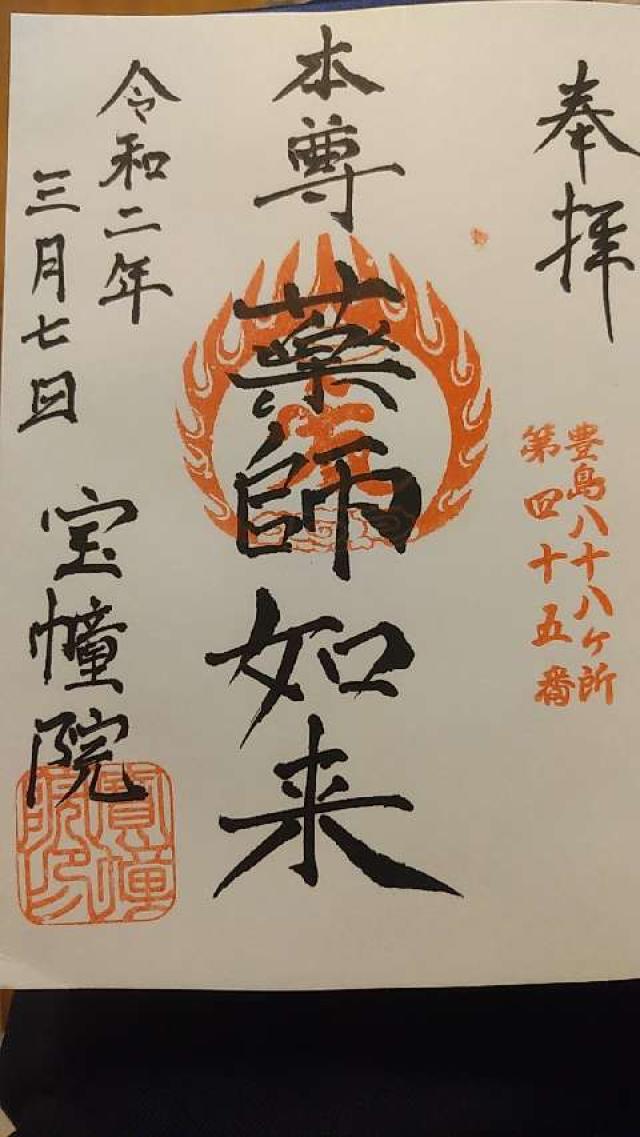 奉拝
豊島八十八ヶ所
第四十五番
本尊
薬師如来
令和二年
三月七日
宝幢院
寶幢院印